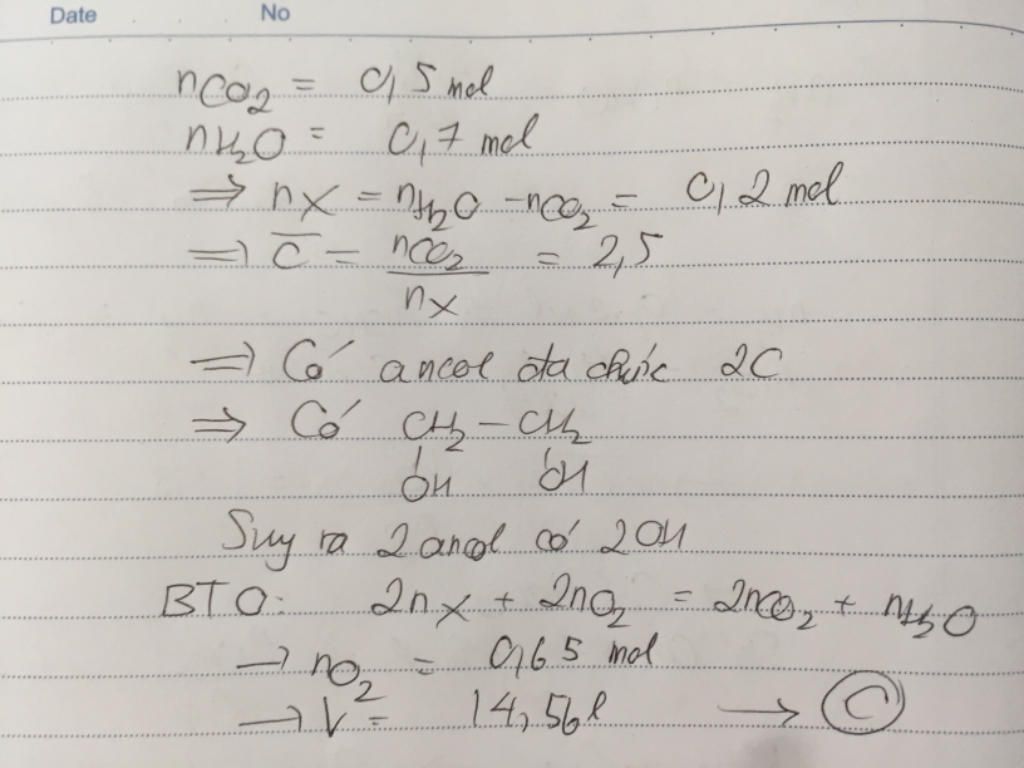 Date No
nCO2 = 0,5 mol
nH2O = 0,7 mol
⇒ nX = nH2O - nCO2 = 0,2 mol
⇒ C̅ = nCO2 / nX = 2,5
⇒ Có ancol đa chức 2C
⇒ Có CH2 - CH2
OH OH
Suy ra 2 ancol có 2OH
BTO: 2nX + 2nO2 = 2nCO2 + nH2O
→ nO2 = 0,65 mol
→ V = 14,56l → C